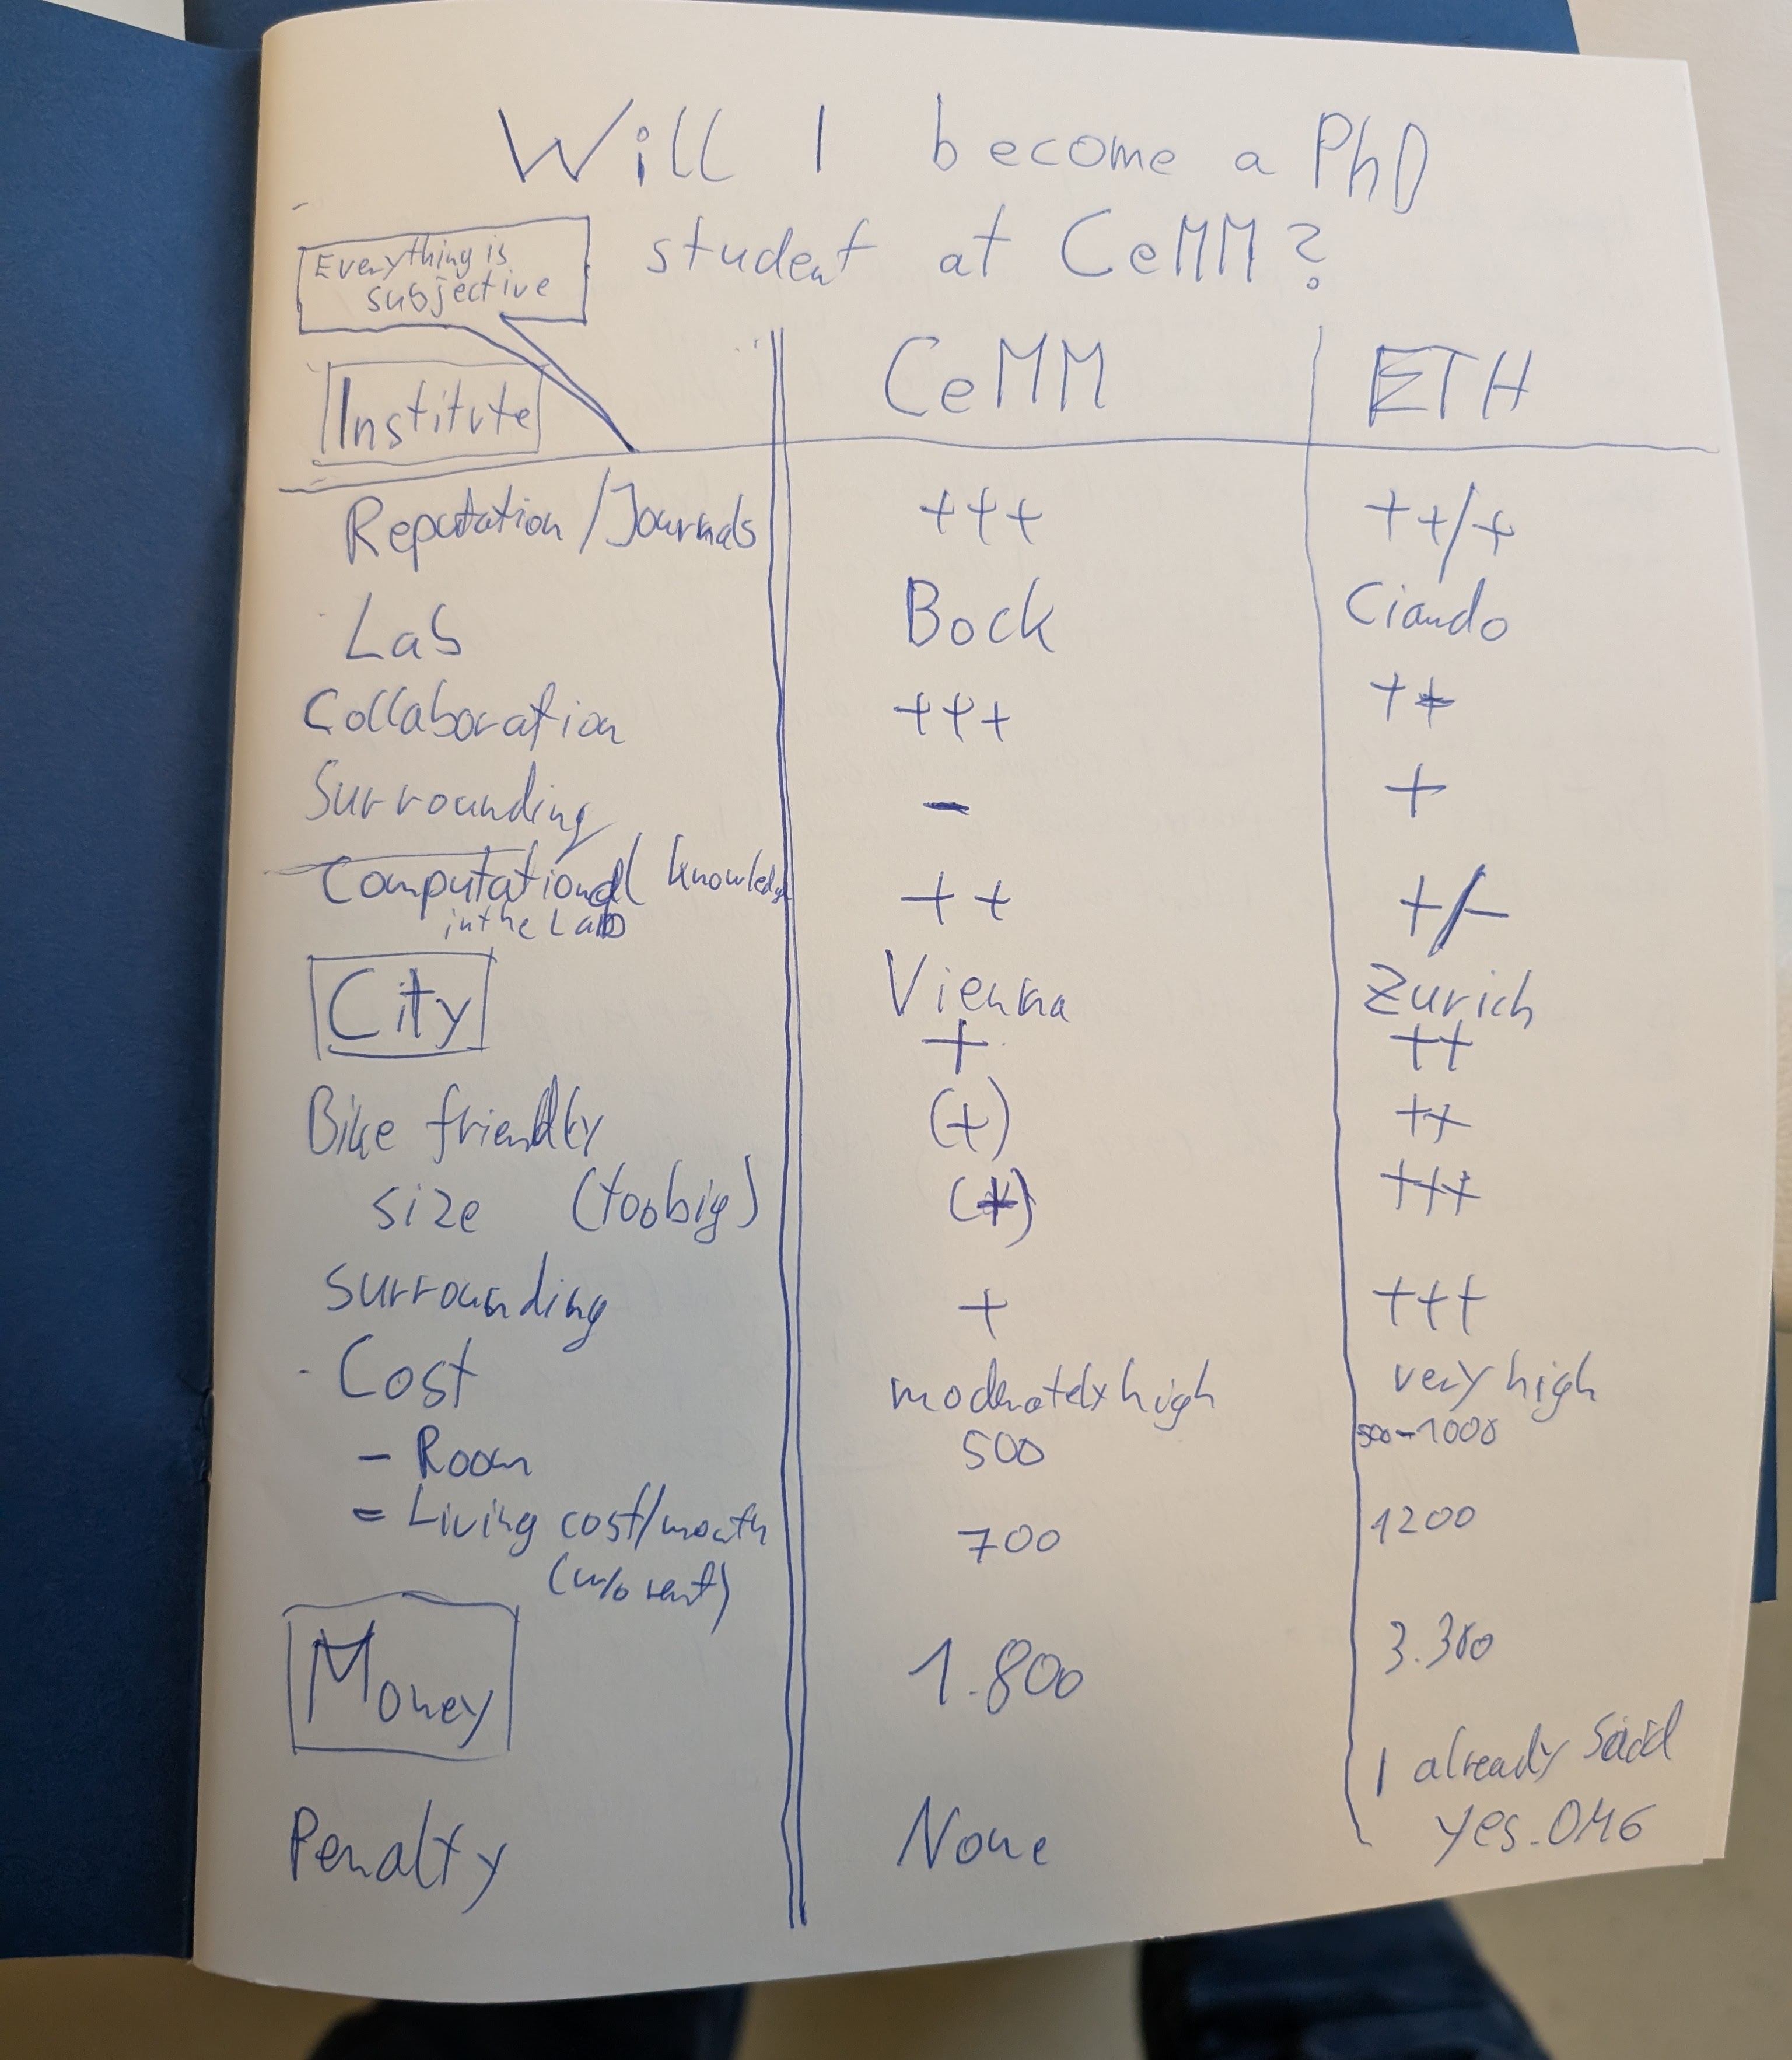 Will I become a PhD
student at CeMM?
Everything is
subjective
Institute CeMM ETH
Reputation/Journals +++ ++/+
Lab Bock Ciaudo
Collaboration +++ ++
Surrounding - +
Computational knowledge ++ +/-
in the Lab
City Vienna Zurich
+ ++
Bike friendly (+) ++
size (too big) (+) +++
surrounding + +++
- Cost moderately high very high
- Room 500 500-1000
= Living cost/month 700 1200
(w/o rent)
Money 1.800
I already said
Penalty None yes. OMG